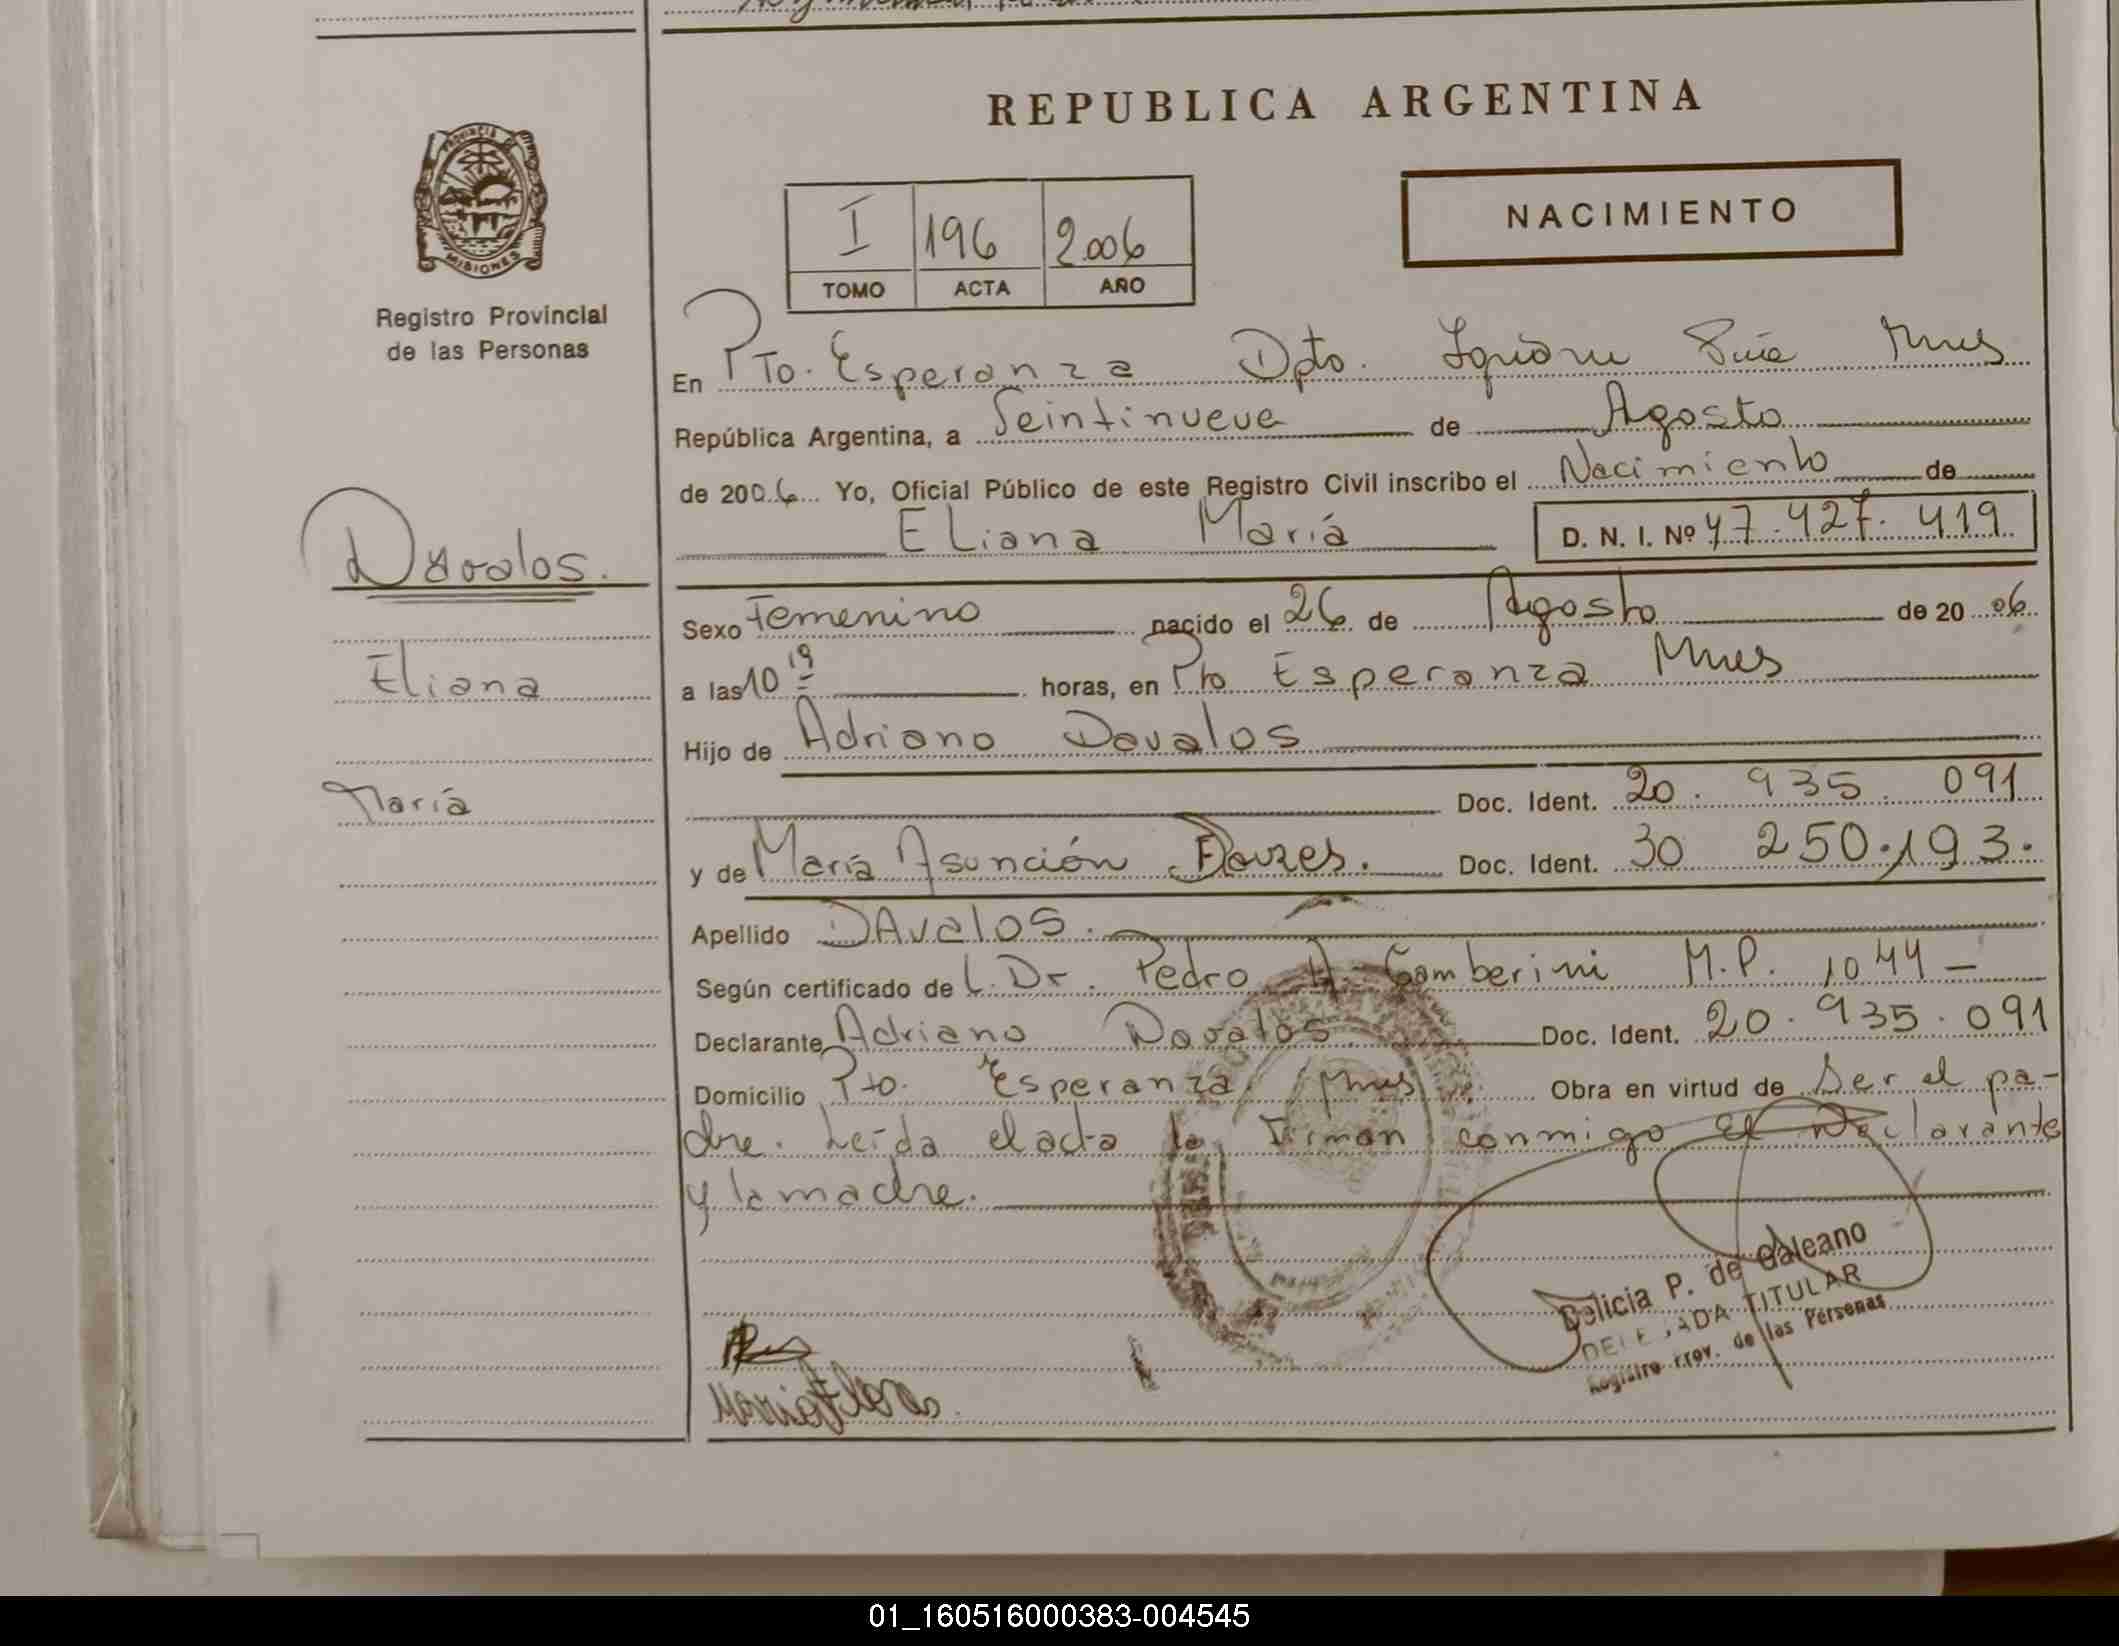 REPUBLICA ARGENTINA
PROVINCIA
MISIONES
Registro Provincial
de las Personas
I 196 2006
TOMO ACTA AÑO
NACIMIENTO
En Pto. Esperanza Dpto. Mnes
República Argentina, a Veintinueve de Agosto
de 2006 Yo, Oficial Público de este Registro Civil inscribo el Nacimiento de
Eliana María D. N. I. Nº 47.427.419
Davalos.
Eliana
María
Sexo Femenino nacido el 26 de Agosto de 2006
a las 10 19 horas, en Pto Esperanza Mnes
Hijo de Adriano Davalos
Doc. Ident. 20.935.091
y de María Asunción Doc. Ident. 30 250.193.
Apellido DAvalos.
Según certificado de L. Dr. Pedro A. Gamberini M.P. 1044
Declarante Adriano Davalos Doc. Ident. 20.935.091
Domicilio Pto. Esperanza Mnes Obra en virtud de Ser el pa-
dre. Leída el acta la Firman conmigo El Declarante
y la madre.
Delicia P. de Galeano
DELEGADA TITULAR
Registro Prov. de las Personas
01_160516000383-004545